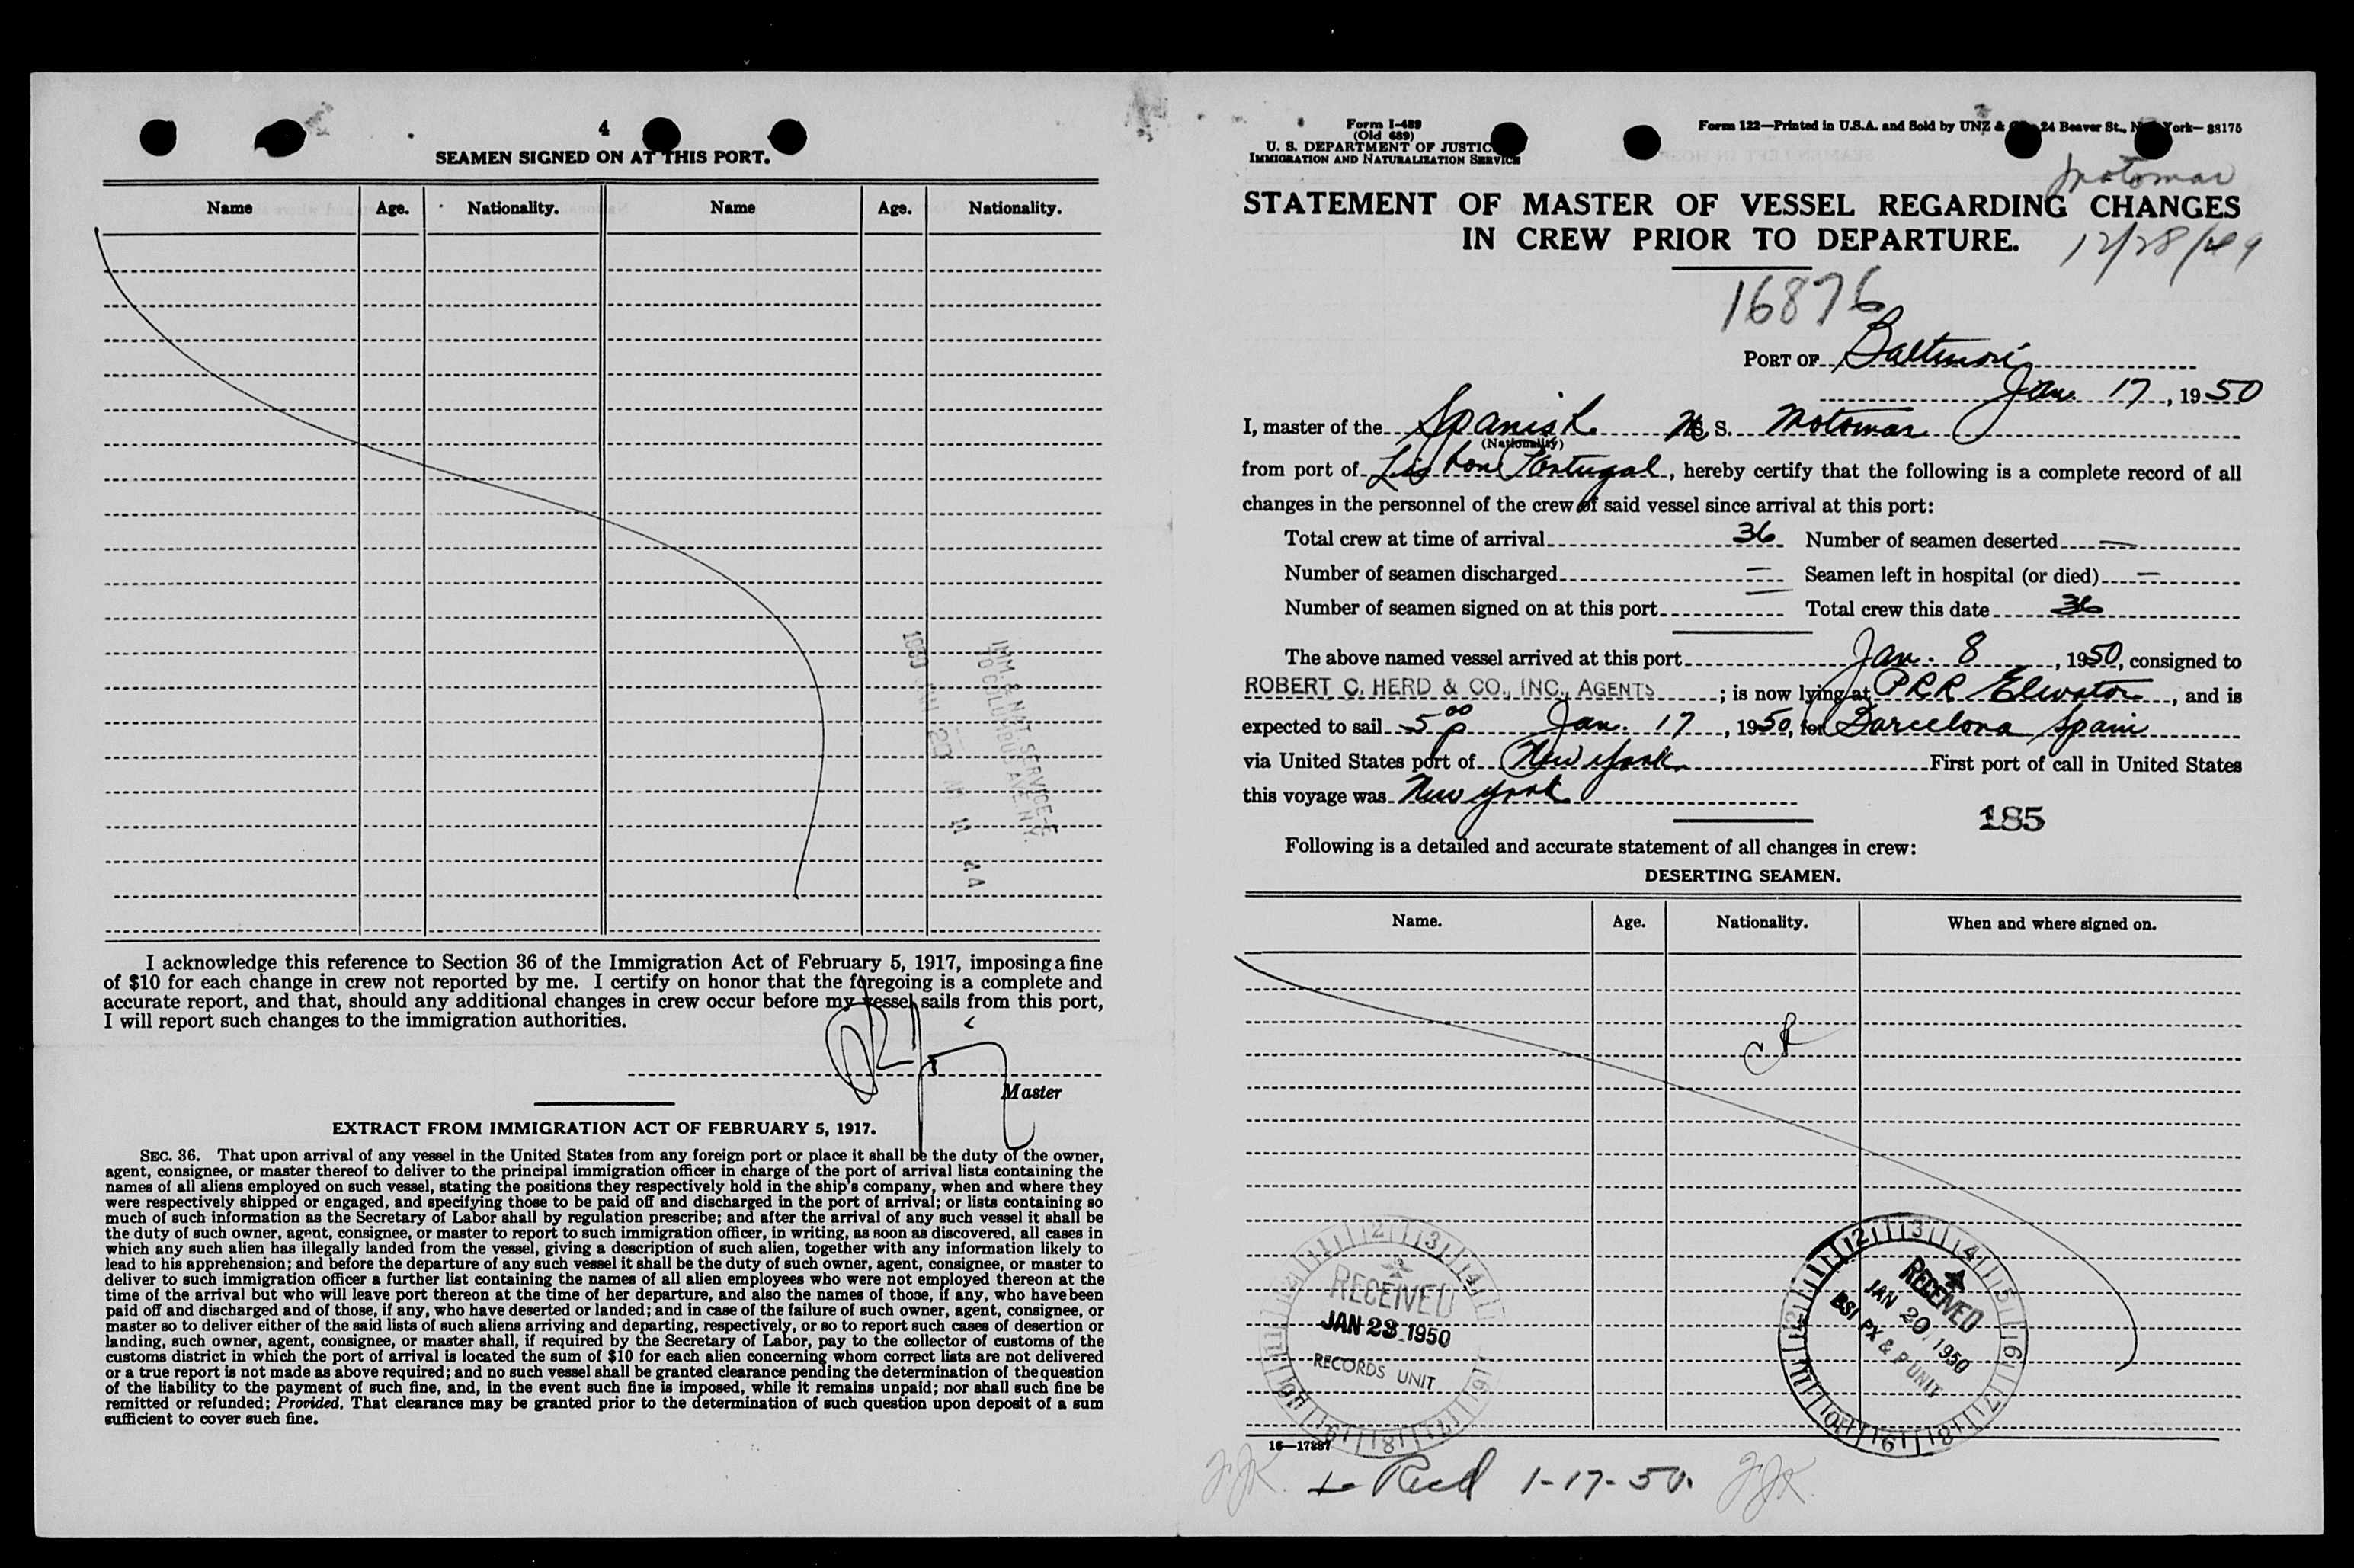 4
SEAMEN SIGNED ON AT THIS PORT.
Name Age. Nationality. Name Age. Nationality.
IMM. & NAT. SERVICE
70 COLUMBUS AVE. N.Y.
1950 JAN 23 AM 11 44
I acknowledge this reference to Section 36 of the Immigration Act of February 5, 1917, imposing a fine
of $10 for each change in crew not reported by me. I certify on honor that the foregoing is a complete and
accurate report, and that, should any additional changes in crew occur before my vessel sails from this port,
I will report such changes to the immigration authorities.
Master
EXTRACT FROM IMMIGRATION ACT OF FEBRUARY 5, 1917.
SEC. 36. That upon arrival of any vessel in the United States from any foreign port or place it shall be the duty of the owner,
agent, consignee, or master thereof to deliver to the principal immigration officer in charge of the port of arrival lists containing the
names of all aliens employed on such vessel, stating the positions they respectively hold in the ship's company, when and where they
were respectively shipped or engaged, and specifying those to be paid off and discharged in the port of arrival; or lists containing so
much of such information as the Secretary of Labor shall by regulation prescribe; and after the arrival of any such vessel it shall be
the duty of such owner, agent, consignee, or master to report to such immigration officer, in writing, as soon as discovered, all cases in
which any such alien has illegally landed from the vessel, giving a description of such alien, together with any information likely to
lead to his apprehension; and before the departure of any such vessel it shall be the duty of such owner, agent, consignee, or master to
deliver to such immigration officer a further list containing the names of all alien employees who were not employed thereon at the
time of the arrival but who will leave port thereon at the time of her departure, and also the names of those, if any, who have been
paid off and discharged and of those, if any, who have deserted or landed; and in case of the failure of such owner, agent, consignee, or
master so to deliver either of the said lists of such aliens arriving and departing, respectively, or so to report such cases of desertion or
landing, such owner, agent, consignee, or master shall, if required by the Secretary of Labor, pay to the collector of customs of the
customs district in which the port of arrival is located the sum of $10 for each alien concerning whom correct lists are not delivered
or a true report is not made as above required; and no such vessel shall be granted clearance pending the determination of the question
of the liability to the payment of such fine, and, in the event such fine is imposed, while it remains unpaid; nor shall such fine be
remitted or refunded; Provided, That clearance may be granted prior to the determination of such question upon deposit of a sum
sufficient to cover such fine.
Form I-489
(Old 689)
U. S. DEPARTMENT OF JUSTICE
IMMIGRATION AND NATURALIZATION SERVICE
Form 122—Printed in U.S.A. and Sold by UNZ & 24 Beaver St., New York—38175
Motomar
STATEMENT OF MASTER OF VESSEL REGARDING CHANGES
IN CREW PRIOR TO DEPARTURE.
12/28/49
16876
PORT OF Baltimore
Jan. 17, 1950
I, master of the Spanish M. S. Motomar
(Nationality)
from port of Lisbon Portugal, hereby certify that the following is a complete record of all
changes in the personnel of the crew of said vessel since arrival at this port:
Total crew at time of arrival 36 Number of seamen deserted —
Number of seamen discharged — Seamen left in hospital (or died) —
Number of seamen signed on at this port — Total crew this date 36
The above named vessel arrived at this port Jan. 8, 1950, consigned to
ROBERT C. HERD & CO., INC., AGENTS; is now lying at PRR Elevator, and is
expected to sail 5 00 p Jan. 17, 1950, for Barcelona Spain
via United States port of New York First port of call in United States
this voyage was New York
185
Following is a detailed and accurate statement of all changes in crew:
DESERTING SEAMEN.
Name. Age. Nationality. When and where signed on.
RECEIVED
JAN 23 1950
RECORDS UNIT
RECEIVED
JAN 20 1950
BSI PX & P UNIT
16—17887
Recd 1-17-50.